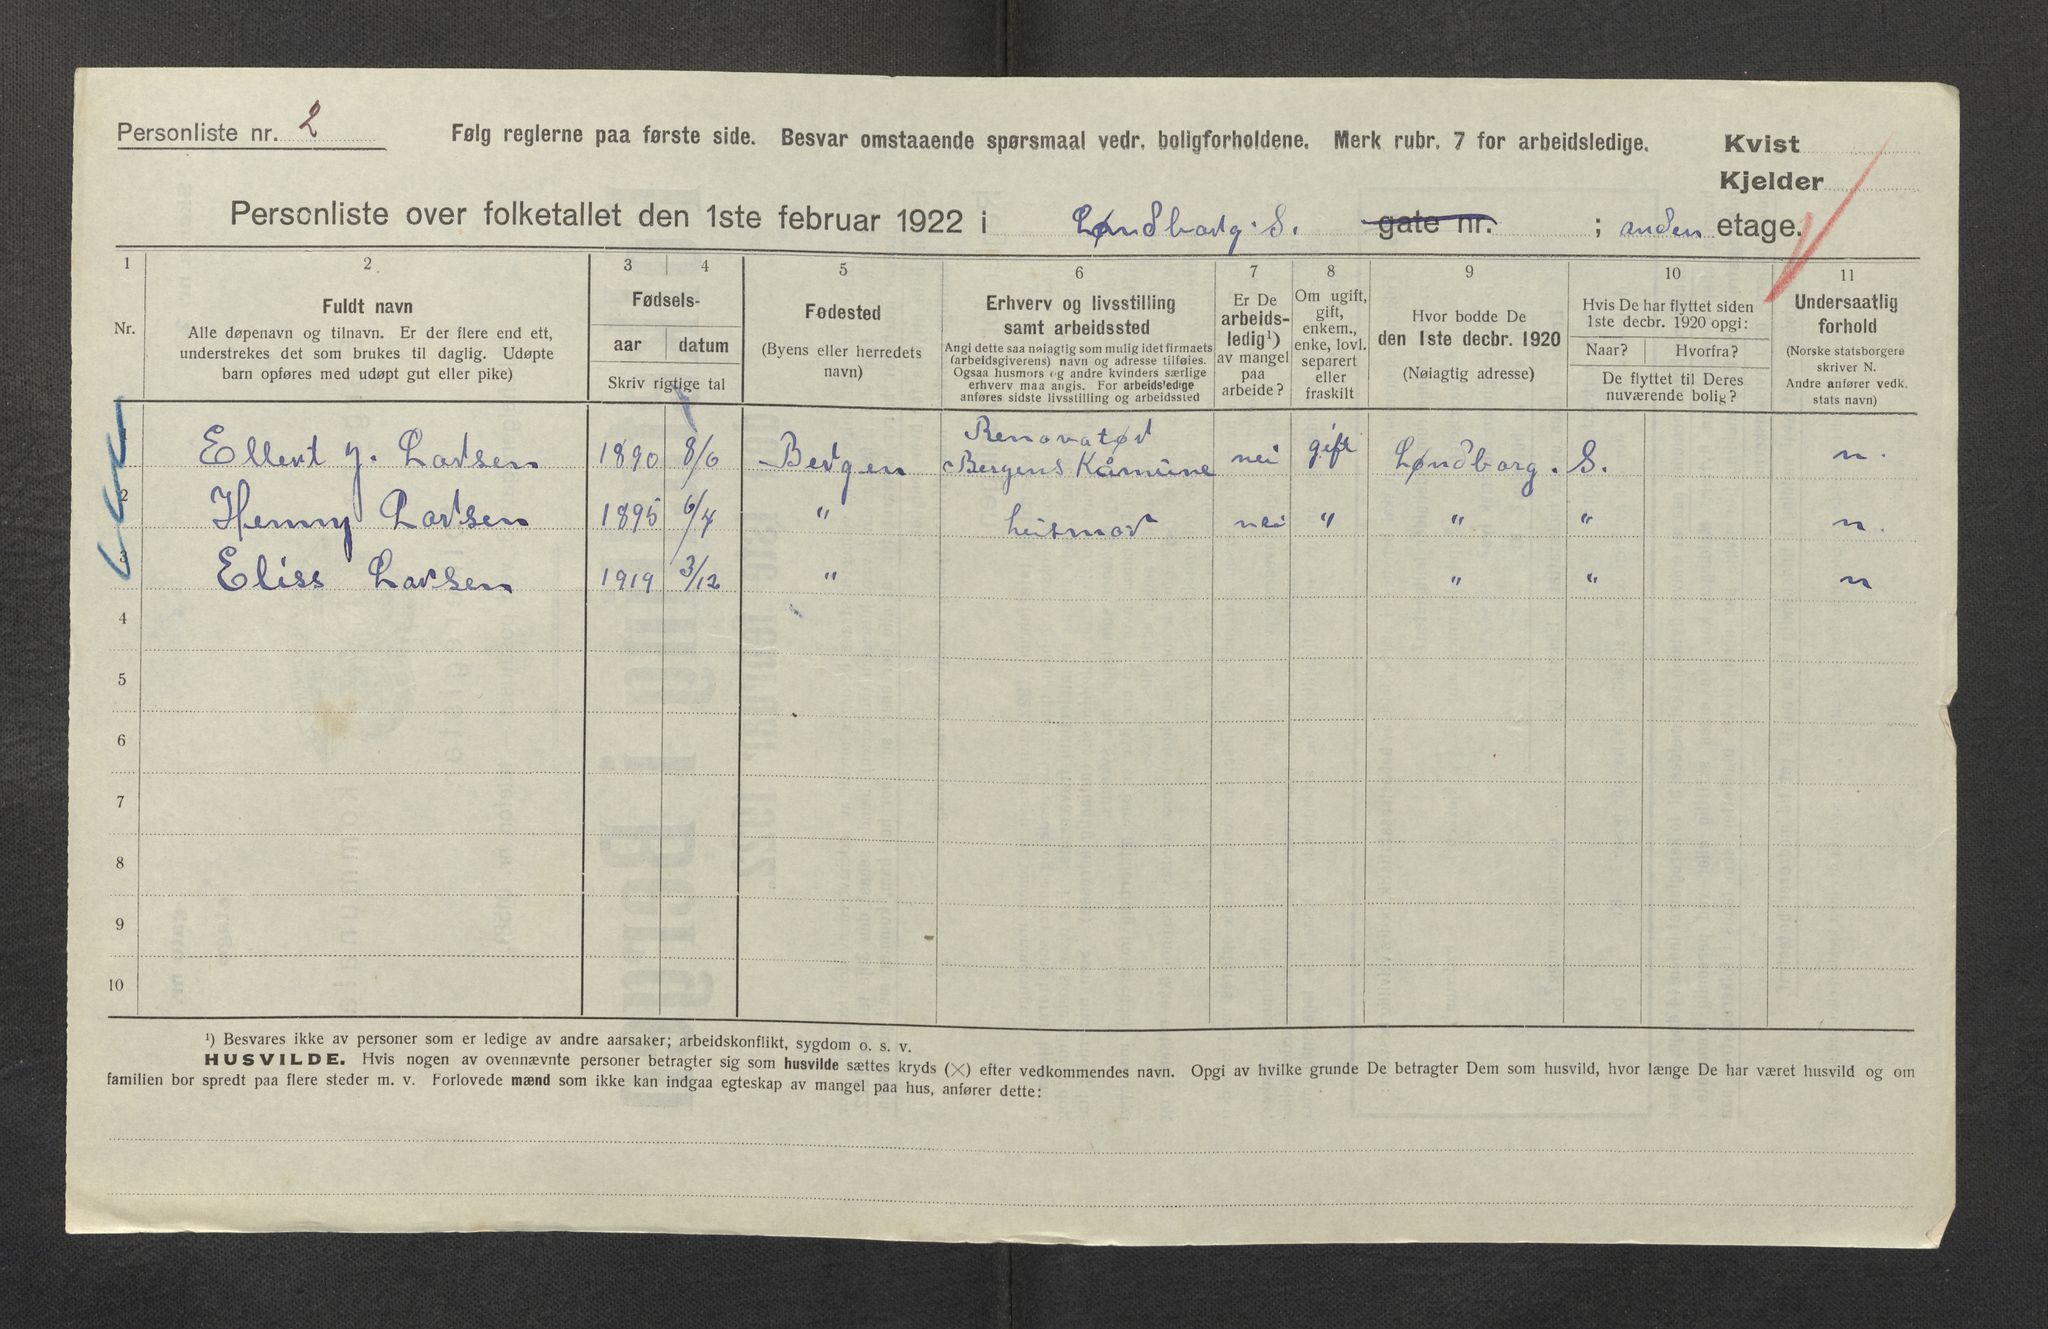 Personliste nr. 2
Følg reglerne paa første side. Besvar omstaaende spørsmaal vedr. boligforholdene. Merk rubr. 7 for arbeidsledige.
Kvist
Kjelder
Personliste over folketallet den 1ste februar 1922 i Løndborg. S. gate nr. ; anden etage.
1 2 3 4 5 6 7 8 9 10 11
Nr.
Fuldt navn
Alle døpenavn og tilnavn. Er der flere end ett,
understrekes det som brukes til daglig. Udøpte
barn opføres med udøpt gut eller pike)
Fødsels-
aar datum
Skriv rigtige tal
Fødested
(Byens eller herredets
navn)
Erhverv og livsstilling
samt arbeidssted
Angi dette saa nøiagtig som mulig idet firmaets
(arbeidsgiverens) navn og adresse tilføies.
Ogsaa husmors og andre kvinders særlige
erhverv maa angis. For arbeidsledige
anføres sidste livsstilling og arbeidssted
Er De
arbeids-
ledig¹)
av mangel
paa
arbeide?
Om ugift,
gift,
enkem.,
enke, lovl.
separert
eller
fraskilt
Hvor bodde De
den 1ste decbr. 1920
(Nøiagtig adresse)
Hvis De har flyttet siden
1ste decbr. 1920 opgi:
Naar? Hvorfra?
De flyttet til Deres
nuværende bolig?
Undersaatlig
forhold
(Norske statsborgere
skriver N.
Andre anfører vedk.
stats navn)
Renovatør
Ellert J. Larsen 1890 8/6 Bergen Bergens Kumune nei gift Løndborg. S. n.
2 Henny Larsen 1895 6/4 " husmor nei " " " n.
3 Eliss Larsen 1919 3/12 " " " n
4
5
6
7
8
9
10
¹) Besvares ikke av personer som er ledige av andre aarsaker; arbeidskonflikt, sygdom o. s. v.
HUSVILDE. Hvis nogen av ovennævnte personer betragter sig som husvilde sættes kryds (×) efter vedkommendes navn. Opgi av hvilke grunde De betragter Dem som husvild, hvor længe De har været husvild og om
familien bor spredt paa flere steder m. v. Forlovede mænd som ikke kan indgaa egteskap av mangel paa hus, anfører dette: